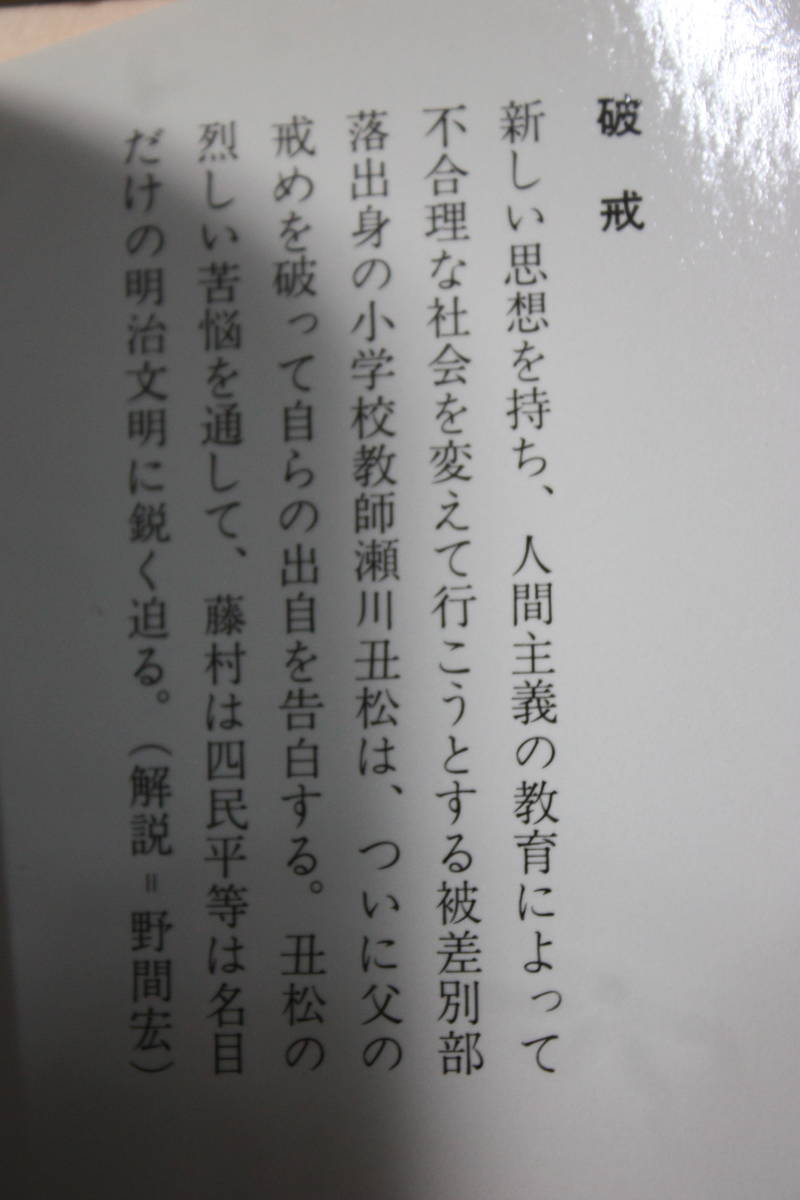 破戒
新しい思想を持ち、人間主義の教育によって
不合理な社会を変えて行こうとする被差別部
落出身の小学校教師瀬川丑松は、ついに父の
戒めを破って自らの出自を告白する。丑松の
烈しい苦悩を通して、藤村は四民平等は名目
だけの明治文明に鋭く迫る。（解説＝野間宏）